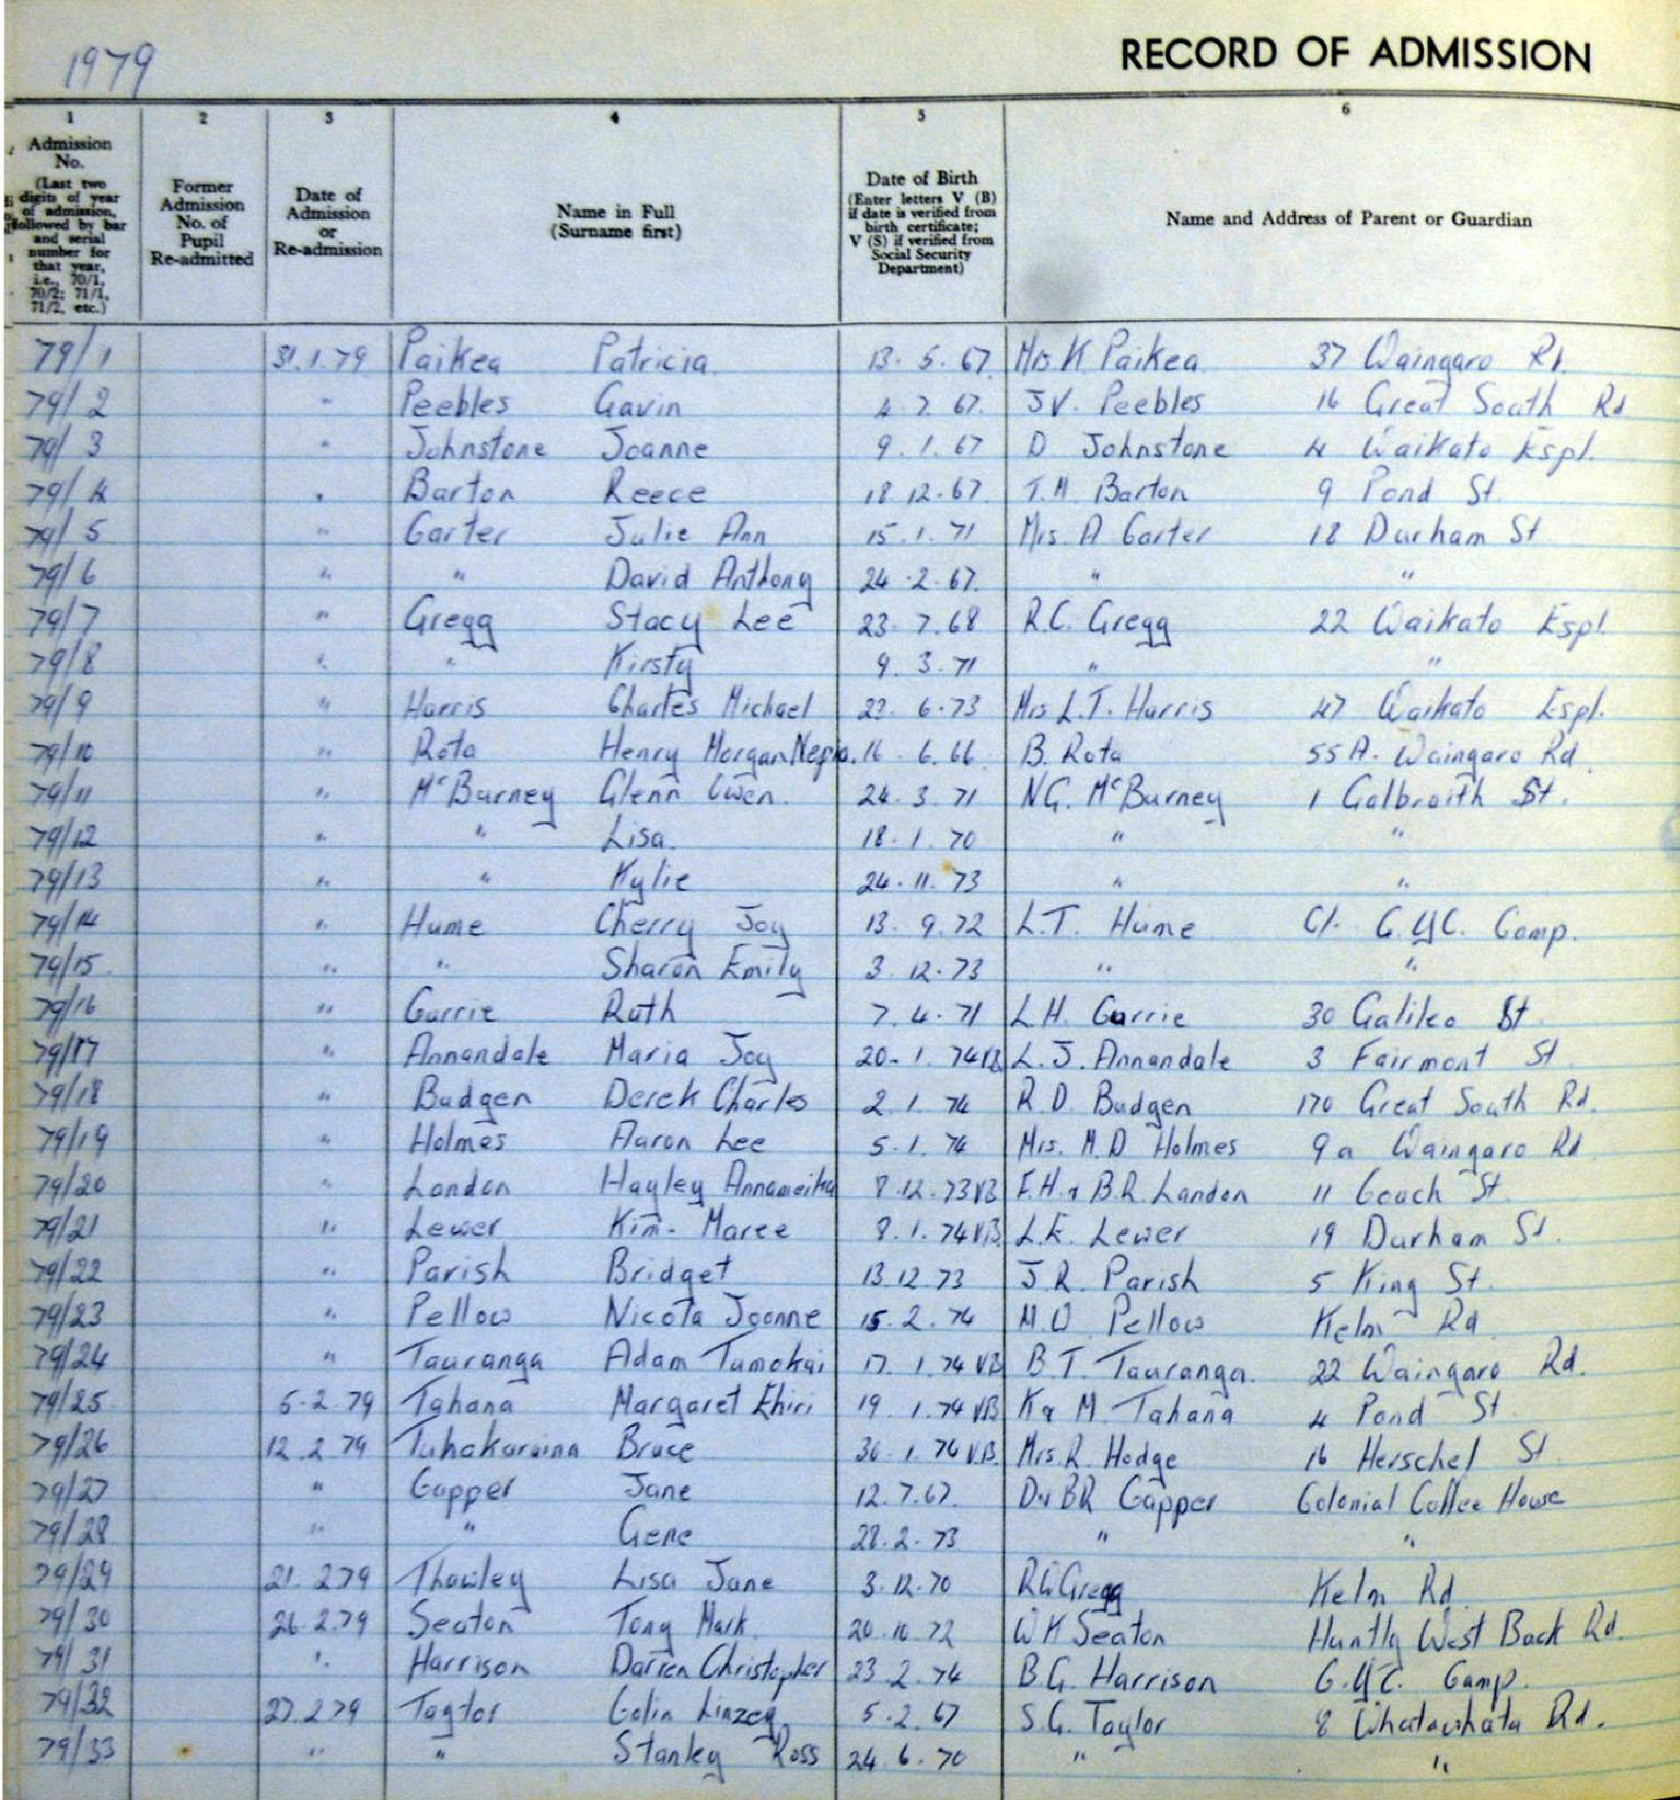 1979
RECORD OF ADMISSION
1 2 3 4 5 6
Admission No. (Last two digits of year of admission, followed by bar and serial number for that year, i.e., 70/1, 70/2; 71/1, 71/2, etc.)
Former Admission No. of Pupil Re-admitted
Date of Admission or Re-admission
Name in Full (Surname first)
Date of Birth (Enter letters V (B) if date is verified from birth certificate; V (S) if verified from Social Security Department)
Name and Address of Parent or Guardian
79/1 31.1.79 Paikea Patricia 13.5.67 Mrs K Paikea 37 Waingaro Rd.
79/2 " Peebles Gavin 4 7. 67. J.V. Peebles 16 Great South Rd
79/3 " Johnstone Joanne 9.1.67 D Johnstone 4 Waikato Espl.
79/4 " Barton Reece 18.12.67 T.M. Barton 9 Pond St.
79/5 " Carter Julie Ann 15.1.71 Mrs. A Carter 18 Durham St
79/6 " " David Anthony 24.2.67. " "
79/7 " Gregg Stacy Lee 23.7.68 R.C. Gregg 22 Waikato Espl.
79/8 " " Kirsty 9.3.71 " "
79/9 " Harris Charles Michael 22.6.73 Mrs L.T. Harris 47 Waikato Espl.
79/10 " Rota Henry Morgan 16.6.66 B. Rota 55A. Waingaro Rd.
79/11 " McBurney Glenn Owen. 24.3.71 N.G. McBurney 1 Galbraith St.
79/12 " " Lisa. 18.1.70 " "
79/13 " " Kylie 24.11.73 " "
79/14 " Hume Cherry Joy 13.9.72 L.T. Hume C/- C.Y.C. Camp.
79/15 " " Sharon Emily 3.12.73 " "
79/16 " Currie Ruth 7.4.71 L.H. Currie 30 Galileo St
79/17 " Annandale Maria Joy 20.1.74 VB L.J. Annandale 3 Fairmont St.
79/18 " Budgen Derek Charles 2.1.74 R.D. Budgen 170 Great South Rd.
79/19 " Holmes Aaron Lee 5.1.74 Mrs. M.D Holmes 9a Waingaro Rd
79/20 " London Hayley 8.12.73 VB F.H. & B.R. London 11 Coach St.
79/21 " Lewer Kim-Maree 8.1.74 VB L.E. Lewer 19 Durham St.
79/22 " Parish Bridget 13.12.73 J.R. Parish 5 King St.
79/23 " Pellow Nicola Joanne 15.2.74 M.O Pellow Kelm Rd
79/24 " Tauranga Adam Tumokai 17.1.74 VB B.T. Tauranga. 22 Waingaro Rd.
79/25 5.2.79 Tahana Margaret Ehiri 19.1.74 VB K & M. Tahana 4 Pond St.
79/26 12.2.79 Tuhakaraina Bruce 30.1.74 VB. Mrs. R. Hodge 16 Herschel St
79/27 " Capper Jane 12.7.67. D & BR Capper Colonial Coffee House
79/28 " " Gene 28.2.73 " "
79/29 21.2.79 Thawley Lisa Jane 3.12.70 R.C Gregg Kelm Rd.
79/30 26.2.79 Seaton Tony Mark. 20.10.72 W K Seaton Huntly West Back Rd.
79/31 " Harrison Darren Christopher 23.2.74 B.G. Harrison C.Y.C. Camp.
79/32 27.2.79 Taylor Colin Linzey 5.2.67 S.G. Taylor 8 Whatawhata Rd.
79/33 " " Stanley Ross 24.6.70 " "